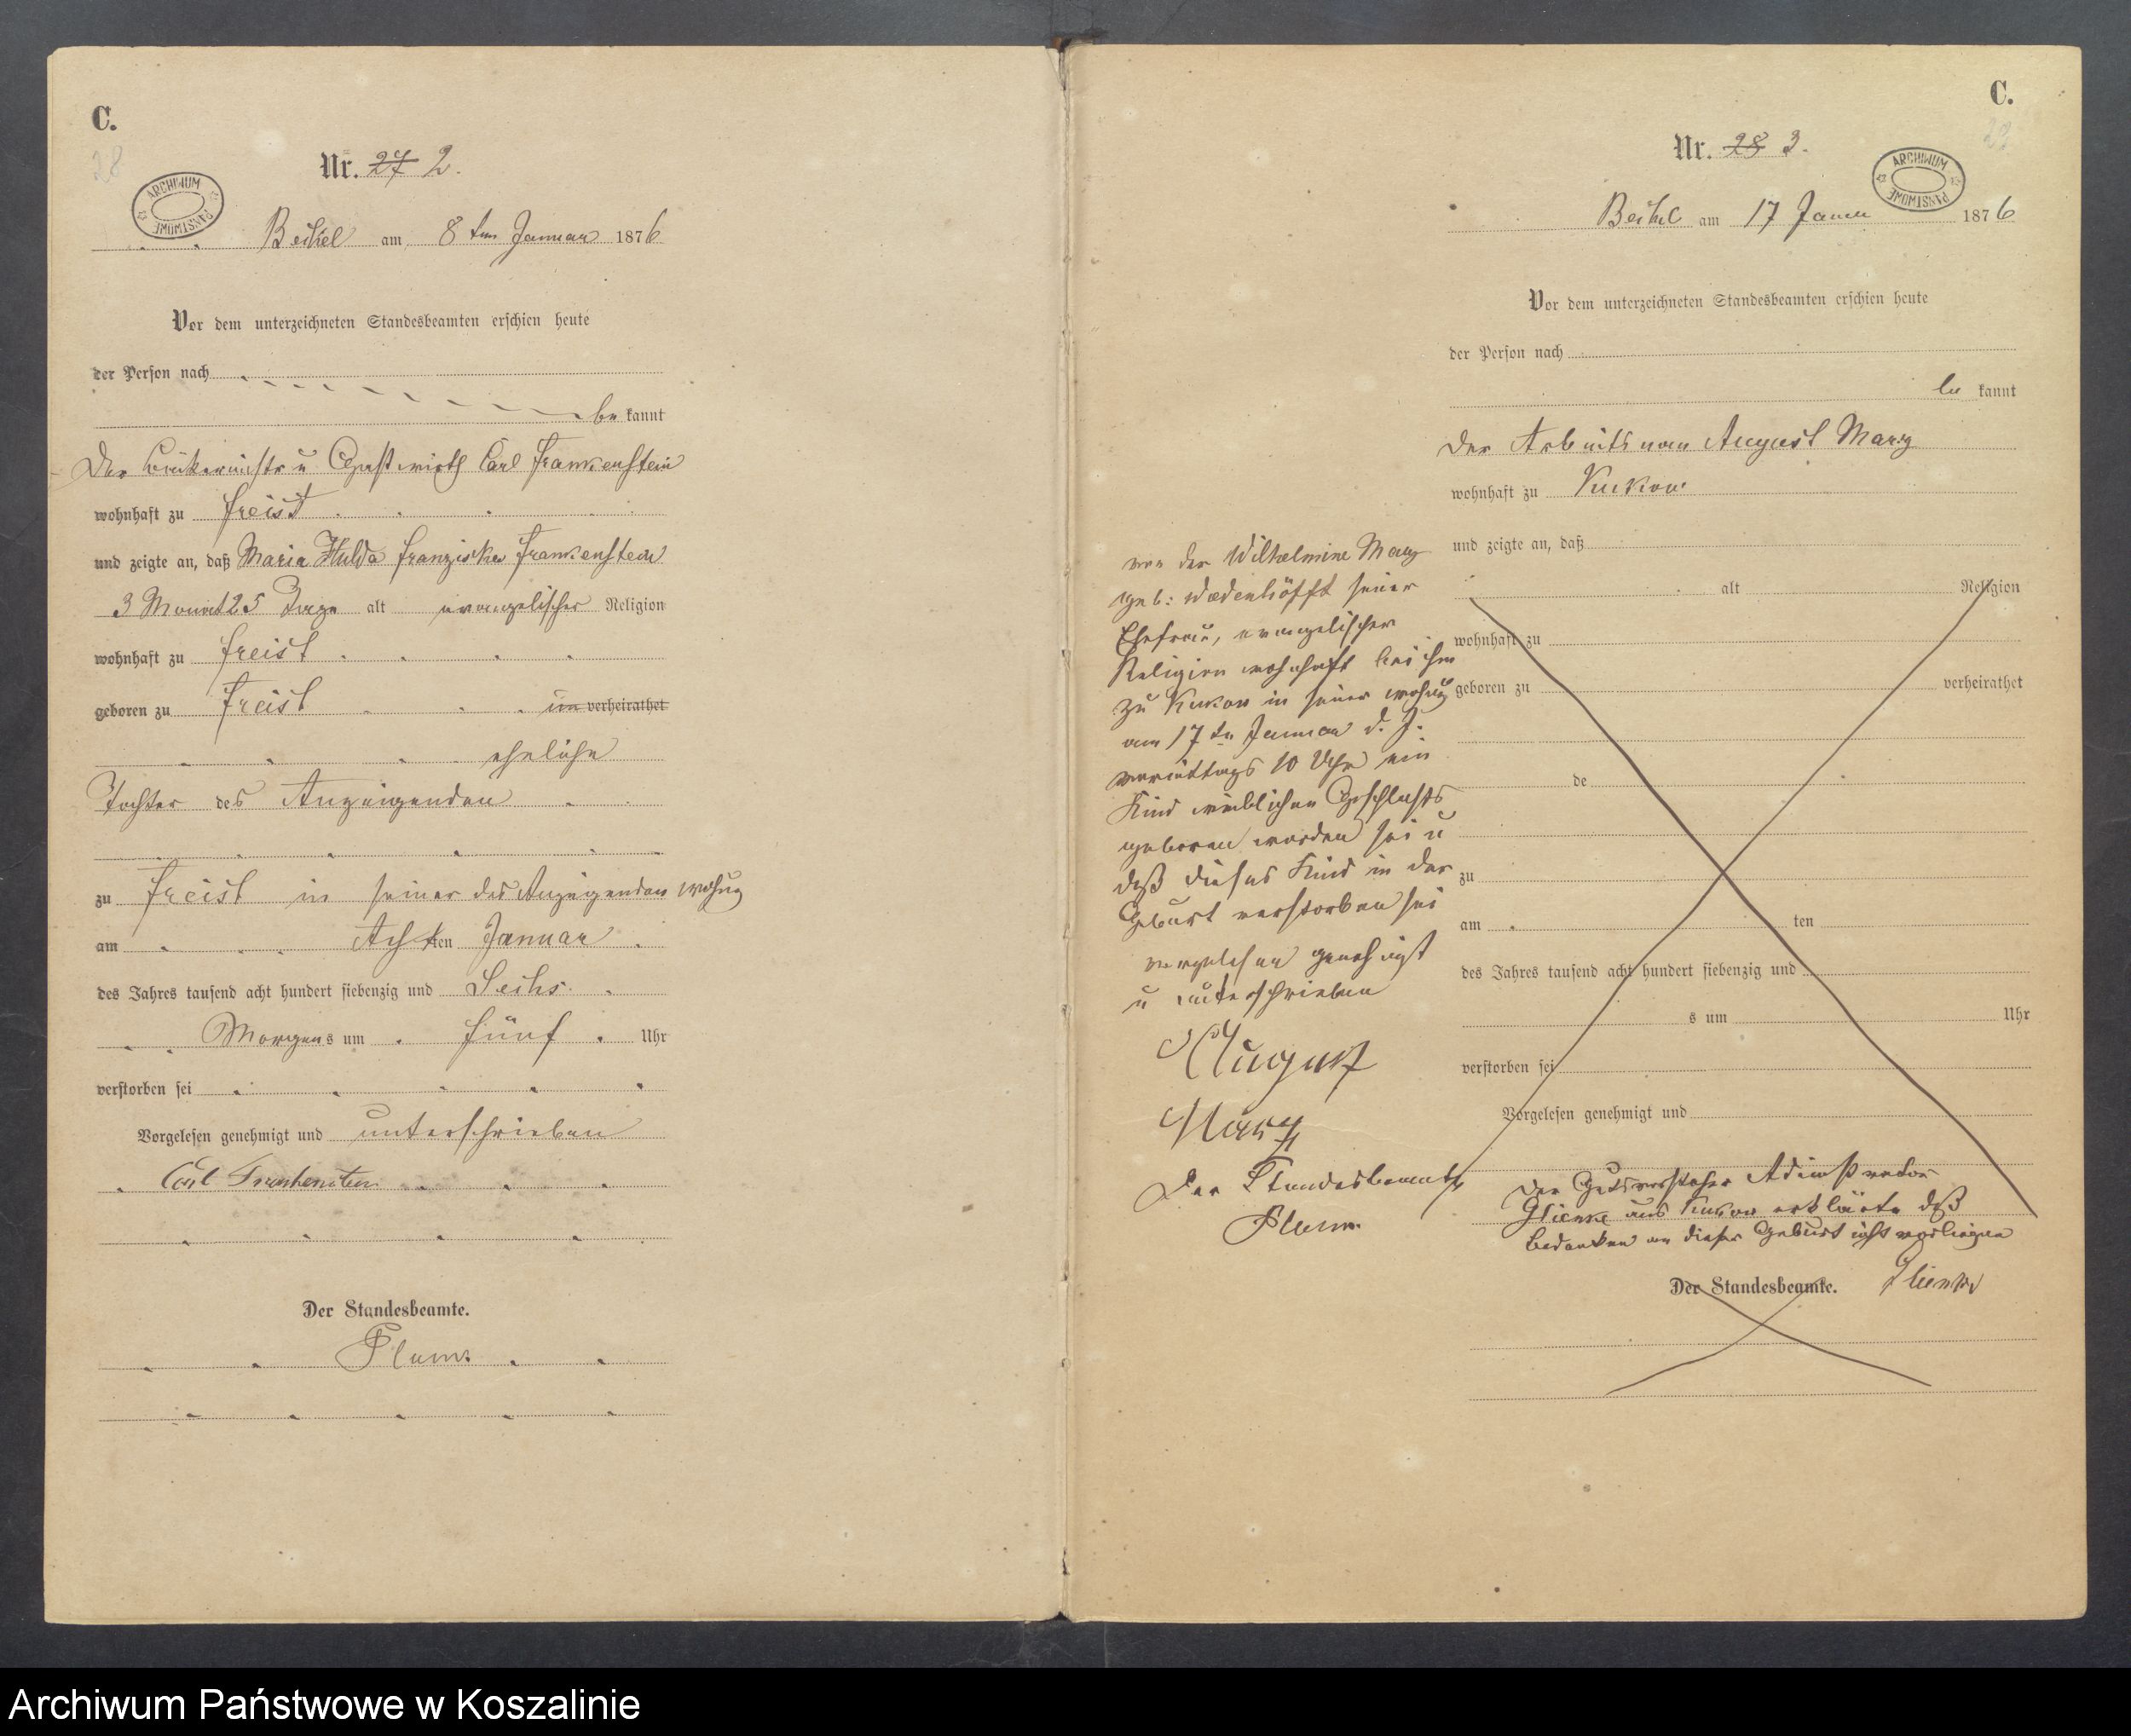 C.
28
Nr. 27 2.
ARCHIWUM PAŃSTWOWE
Beckel am 8ten Januar 1876
Vor dem unterzeichneten Standesbeamten erschien heute
der Person nach
be kannt
Der u Gastwirth Carl Frankenstein
wohnhaft zu Freist
und zeigte an, daß Maria Hulda Franziska Frankenstein
3 Monat 25 Tage alt evangelischer Religion
wohnhaft zu Freist
geboren zu Freist un verheirathet
eheliche
Tochter des Anzeigenden
zu Freist in seiner des Anzeigenden Wohnug
am Achten Januar
des Jahres tausend acht hundert siebenzig und Sechs
Morgens um fünf Uhr
verstorben sei
Vorgelesen genehmigt und unterschrieben
Carl Frankenstein
Der Standesbeamte.
Plum
C.
29
Nr. 28 3.
ARCHIWUM PAŃSTWOWE
Beckel am 17 Janu 1876
Vor dem unterzeichneten Standesbeamten erschien heute
der Person nach
be kannt
Der Arbeitsman August Marg
wohnhaft zu Kukow
und zeigte an, daß
alt Religion
wohnhaft zu
geboren zu verheirathet
de
zu
am ten
des Jahres tausend acht hundert siebenzig und
s um Uhr
verstorben sei
Vorgelesen genehmigt und
von der Wilhelmine Marg
geb: seiner
Ehefrau, evangelischer
Religion wohnhaft bei ihm
zu Kukow in seiner Wohnug
am 17 ten Januar d. J.
vormittags 10 Uhr ein
Kind weiblichen Geschlechts
geboren worden sei u
daß dieses Kind in der
Geburt verstorben sei
vorgelesen genehmigt
u unterschrieben
August
Marg
Der Standesbeamte
Plum
Der Gutsvorsteher
Glienke aus Kukow erklärte daß
Bedenken an dieser Geburt nicht vorliegen
Der Standesbeamte. Glienke
Archiwum Państwowe w Koszalinie